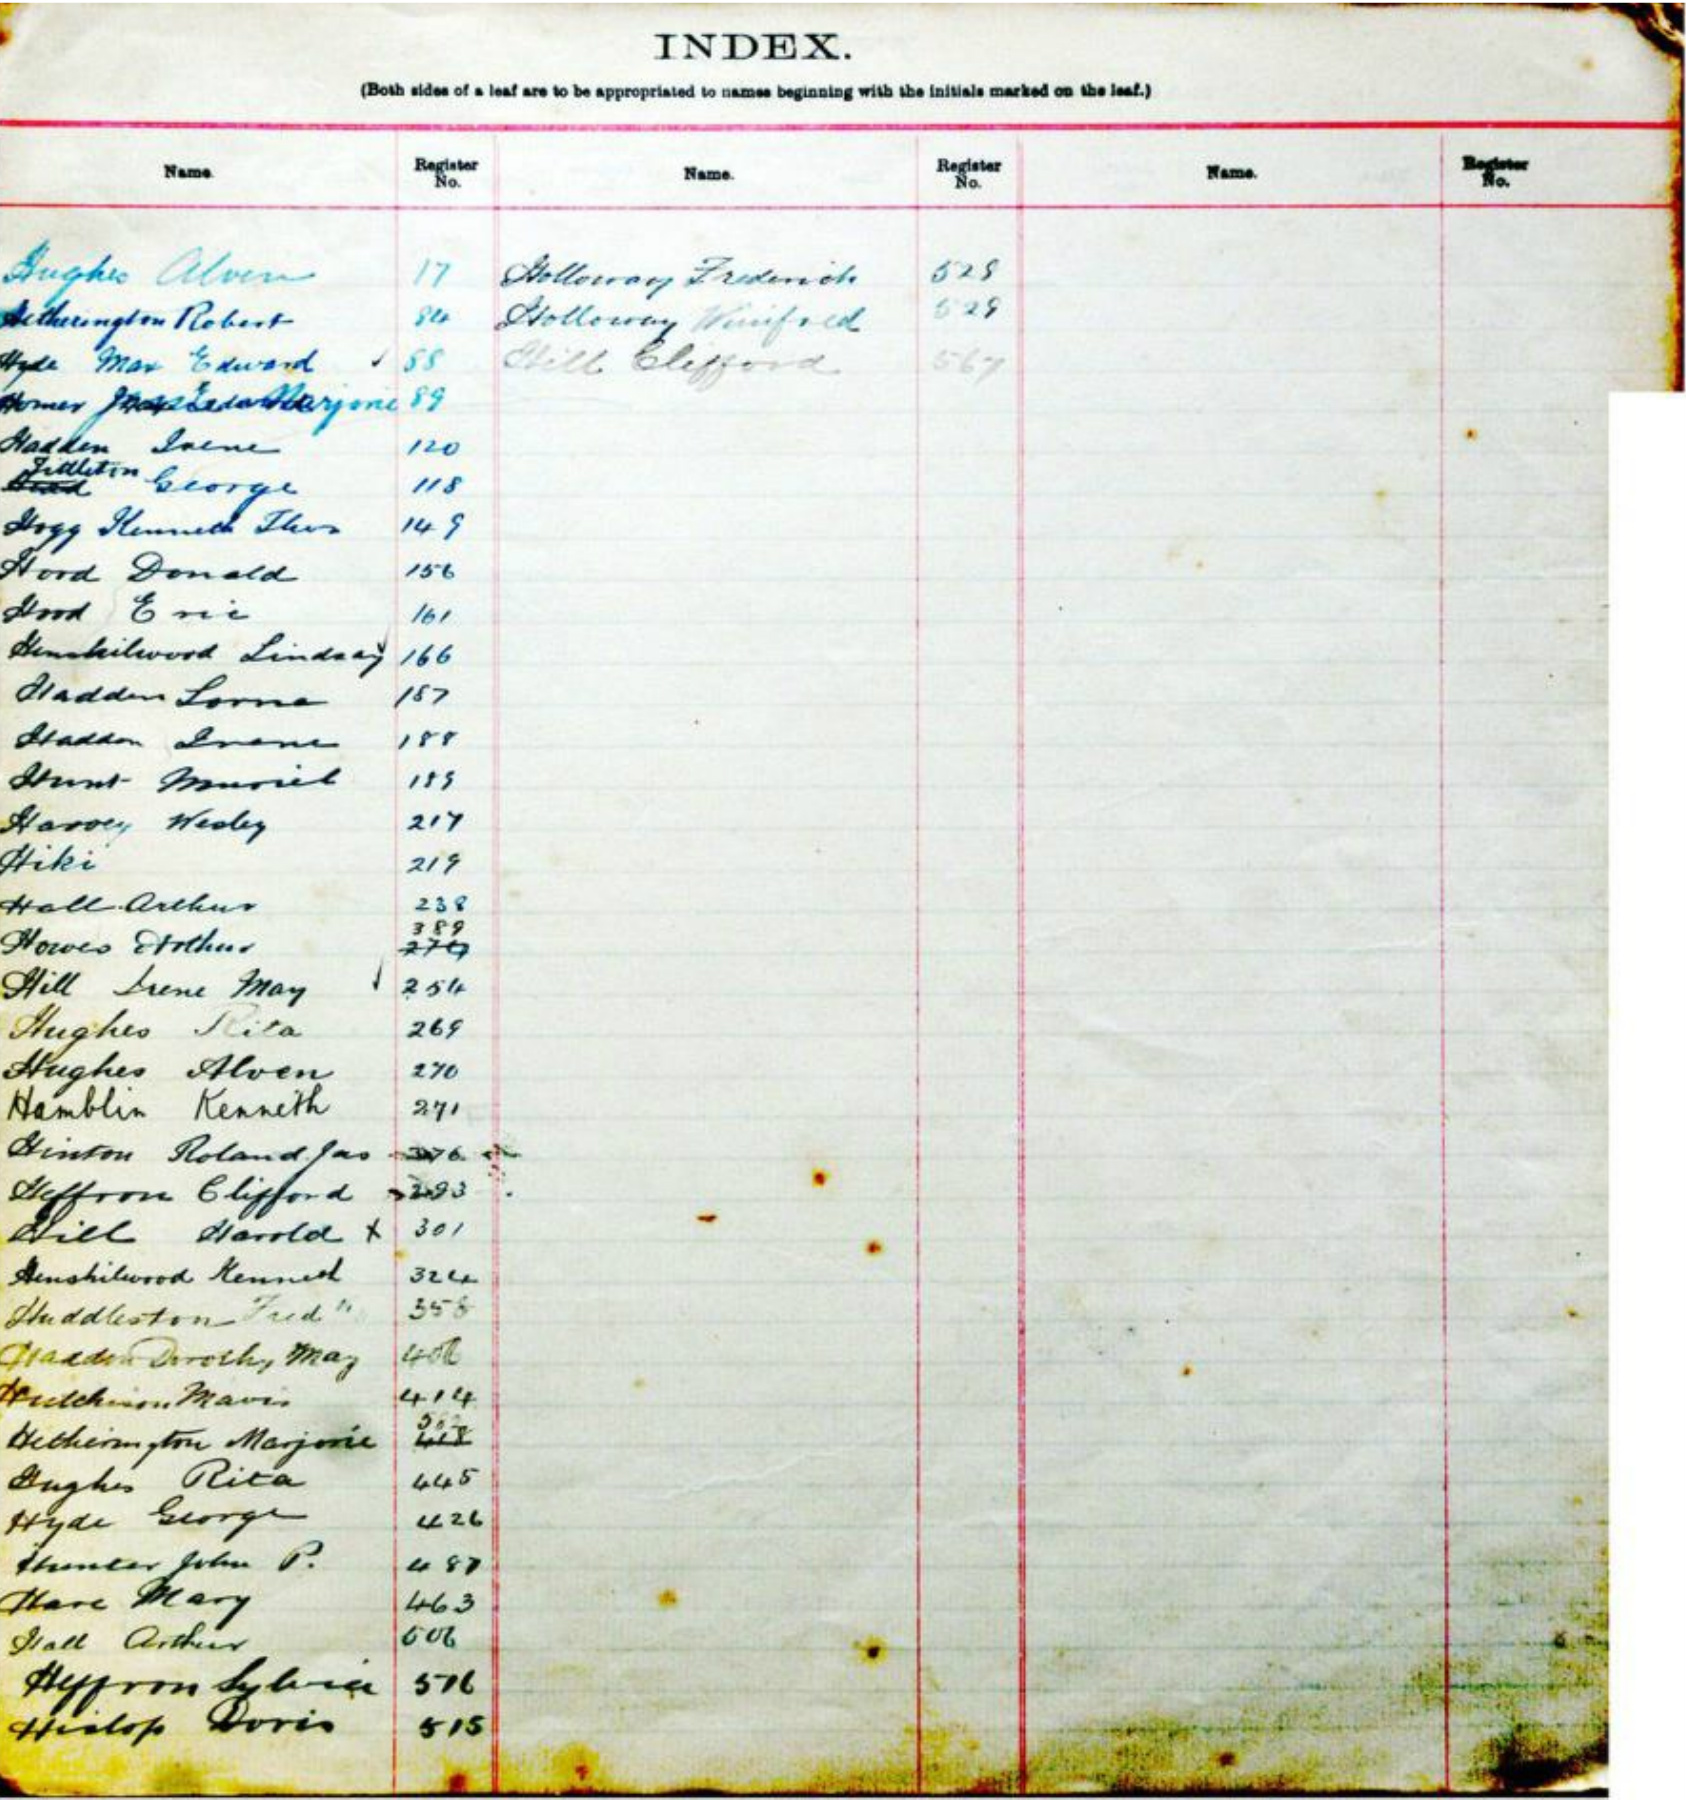 INDEX.
(Both sides of a leaf are to be appropriated to names beginning with the initials marked on the leaf.)
Name. Register No. Name. Register No. Name. Register No.
Hughes Alven 17 Holloway Frederick 528
Hetherington Robert 84 Holloway Winifred 529
Hyde Max Edward 88 Hill Clifford 567
Homer Marjorie 89
Hadden Irene 120
George 118
Hogg Kenneth Thos 149
Hood Donald 156
Hood Eric 161
Henshilwood Lindsay 166
Hadden Lorna 187
Hadden Irene 188
Hunt Muriel 189
Harvey Wesley 217
Hiki 219
Hall Arthur 238
389
Howes Arthur
Hill Irene May 254
Hughes Rita 269
Hughes Alven 270
Hamblin Kenneth 271
Hinton Roland Jas
Heffron Clifford 293
Hill Harold x 301
Henshilwood Kenneth 324
Huddleston Fred 358
Hadden Dorothy May
Hutchison Mavis 414
Hetherington Marjorie
Hughes Rita 445
Hyde George 426
Hunter John P. 487
Hare Mary 463
Hall Arthur 506
Heffron Sylvia 516
Hislop Doris 515